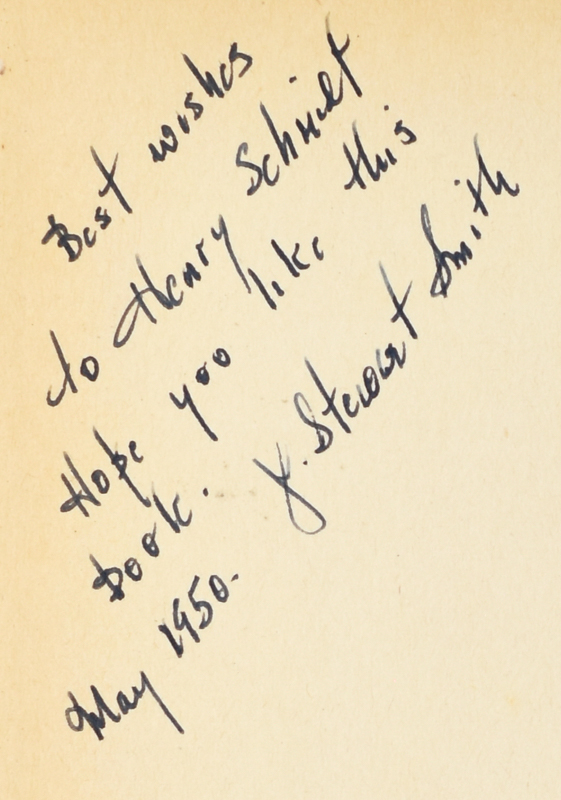 Best wishes
to Henry Schmidt
Hope you like this
Book.
J. Stewart Smith
May 1950.